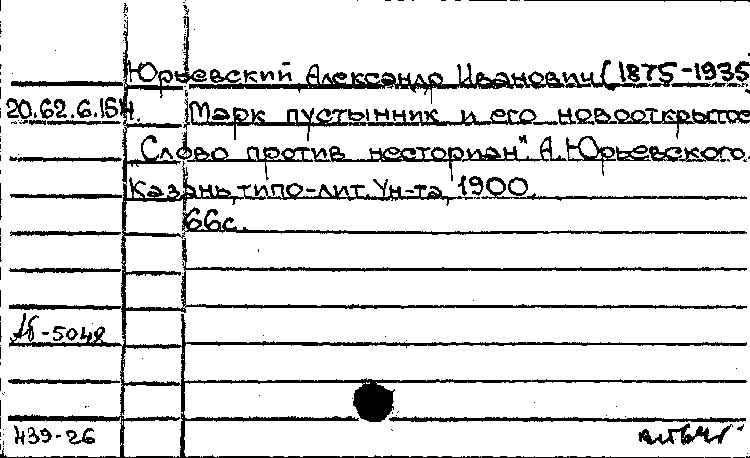 Юрьевский, Александр Иванович (1875-1935
20.62.6.154. Марк пустынник и его новооткрытое
„Слово против несториан". А.Юрьевского.
Казань, типо-лит. Ун-та, 1900.
66с.
Аб-5042
439-26